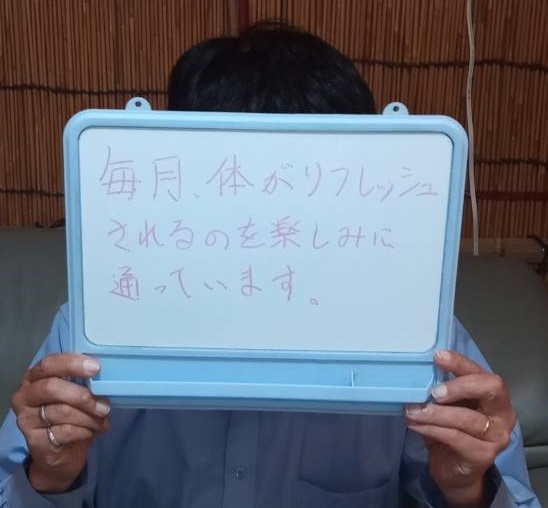 毎月、体がリフレッシュ
されるのを楽しみに
通っています。